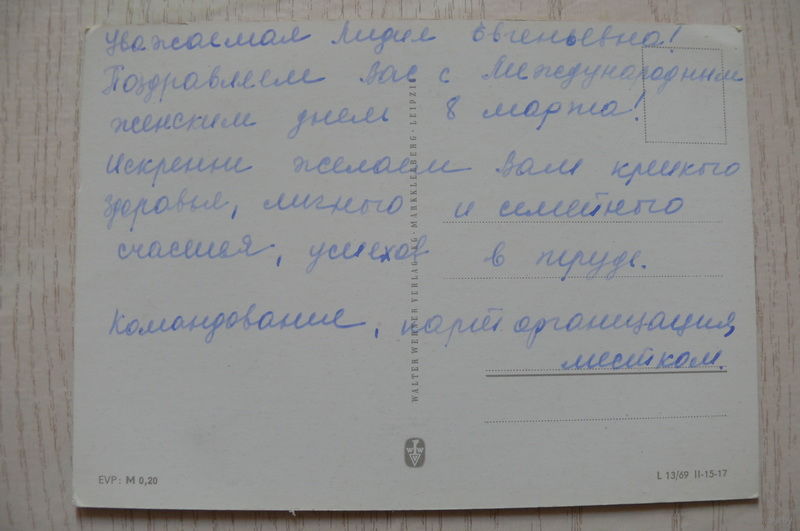 Уважаемая Лидия Евгеньевна!
Поздравляем Вас с Международным
женским днем 8 марта!
Искренни желаем Вам крепкого
здоровья, личного и семейного
счастья, успехов в труде.
Командование, парторганизация,
местком.
WALTER WERNER VERLAG KG · MARKKLEEBERG · LEIPZIG
EVP: M 0,20
L 13/69 II-15-17